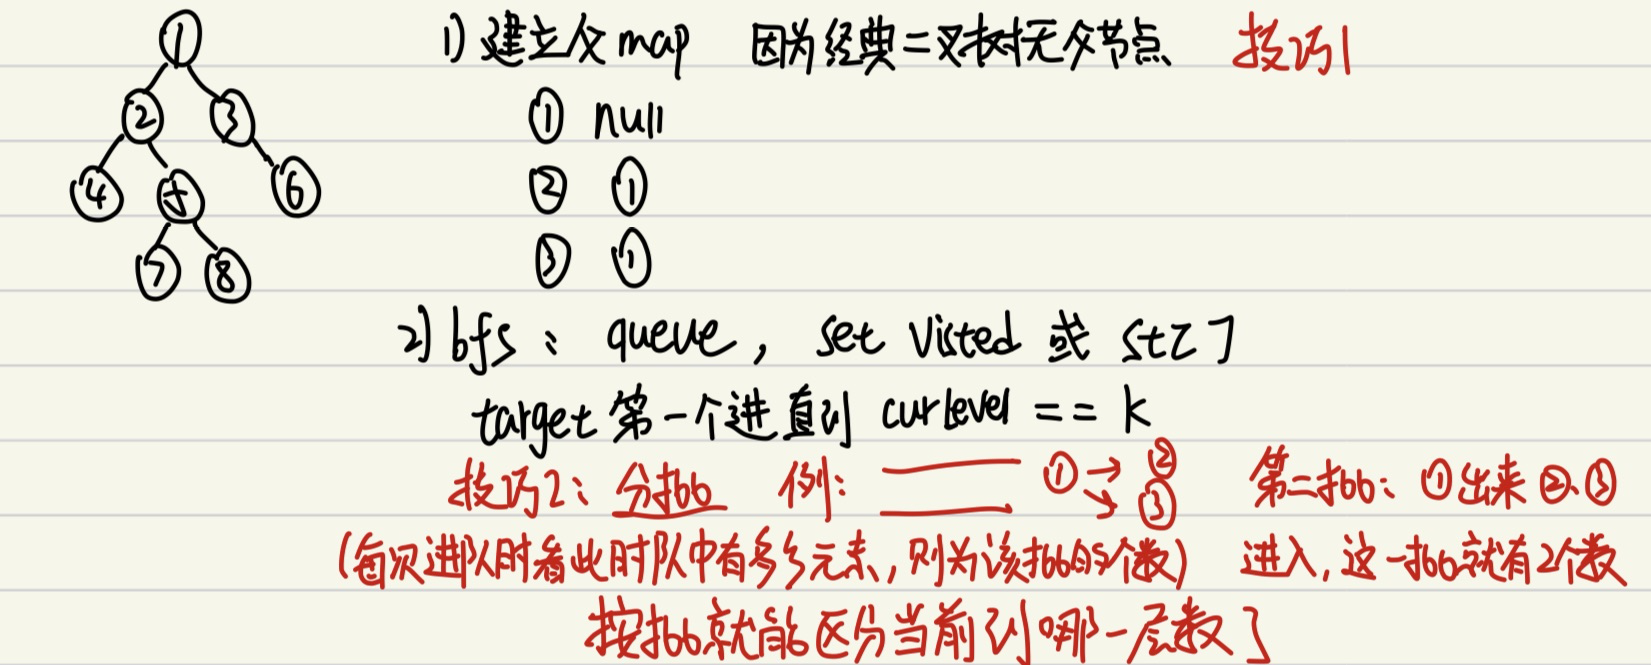 1
1) 建立父map 因为经典二叉树无父节点 技巧1
2 3
① null
4 5 6
② ①
7 8
③ ①
2) bfs: queue, set visted 或 st[]
target 第一个进 直到 curlevel == k
技巧2: 分批 例: ①→② ③ 第二批: ①出来②、③
(每次进队时看此时队中有多少元素, 则为该批的个数) 进入, 这一批就有2个数
按批就能区分当前到哪一层数]